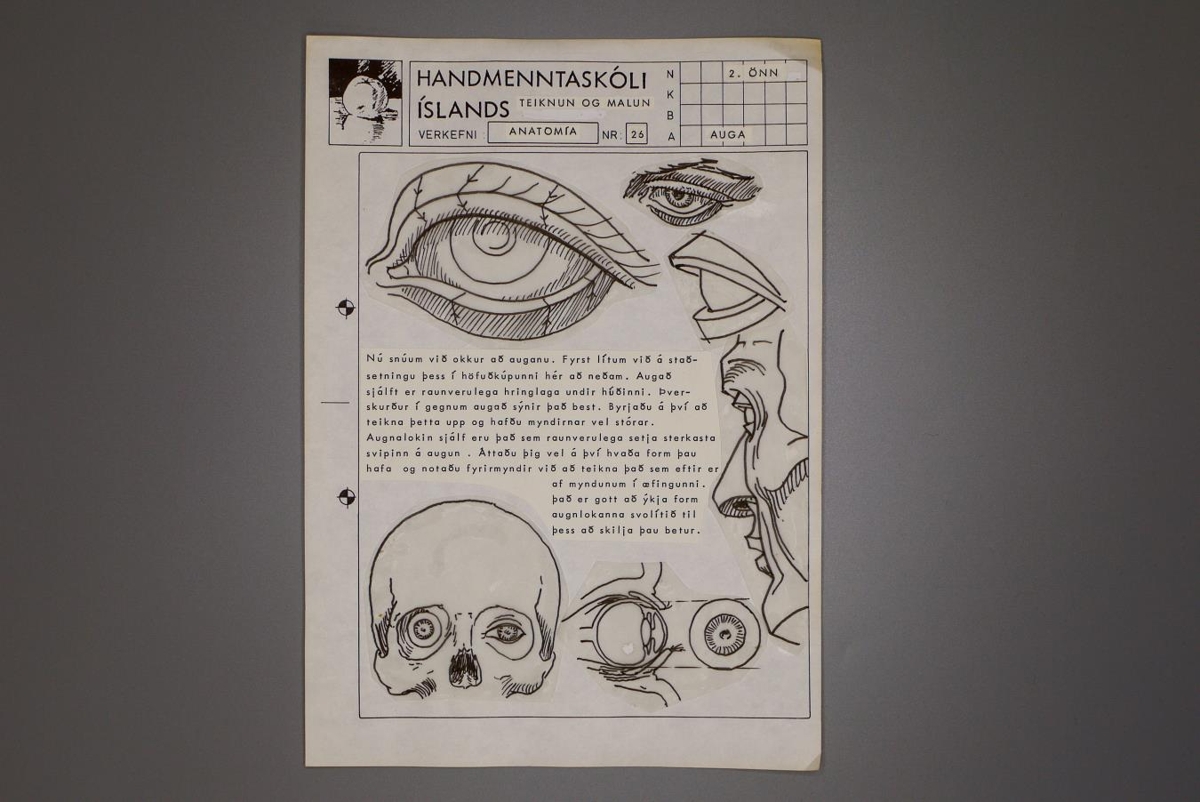 HANDMENNTASKÓLI
ÍSLANDS TEIKNUN OG MALUN
VERKEFNI ANATOMÍA NR: 26
N
K
B
A
2. ÖNN
AUGA
Nú snúum við okkur að auganu. Fyrst lítum við á stað-
setningu þess í höfuðkúpunni hér að neðam. Augað
sjálft er raunverulega hringlaga undir húðinni. Þver-
skurður í gegnum augað sýnir það best. Byrjaðu á því að
teikna þetta upp og hafðu myndirnar vel stórar.
Augnalokin sjálf eru það sem raunverulega setja sterkasta
svipinn á augun . Áttaðu þig vel á því hvaða form þau
hafa og notaðu fyrirmyndir við að teikna það sem eftir er
af myndunum í æfingunni.
það er gott að ýkja form
augnlokanna svolítið til
þess að skilja þau betur.